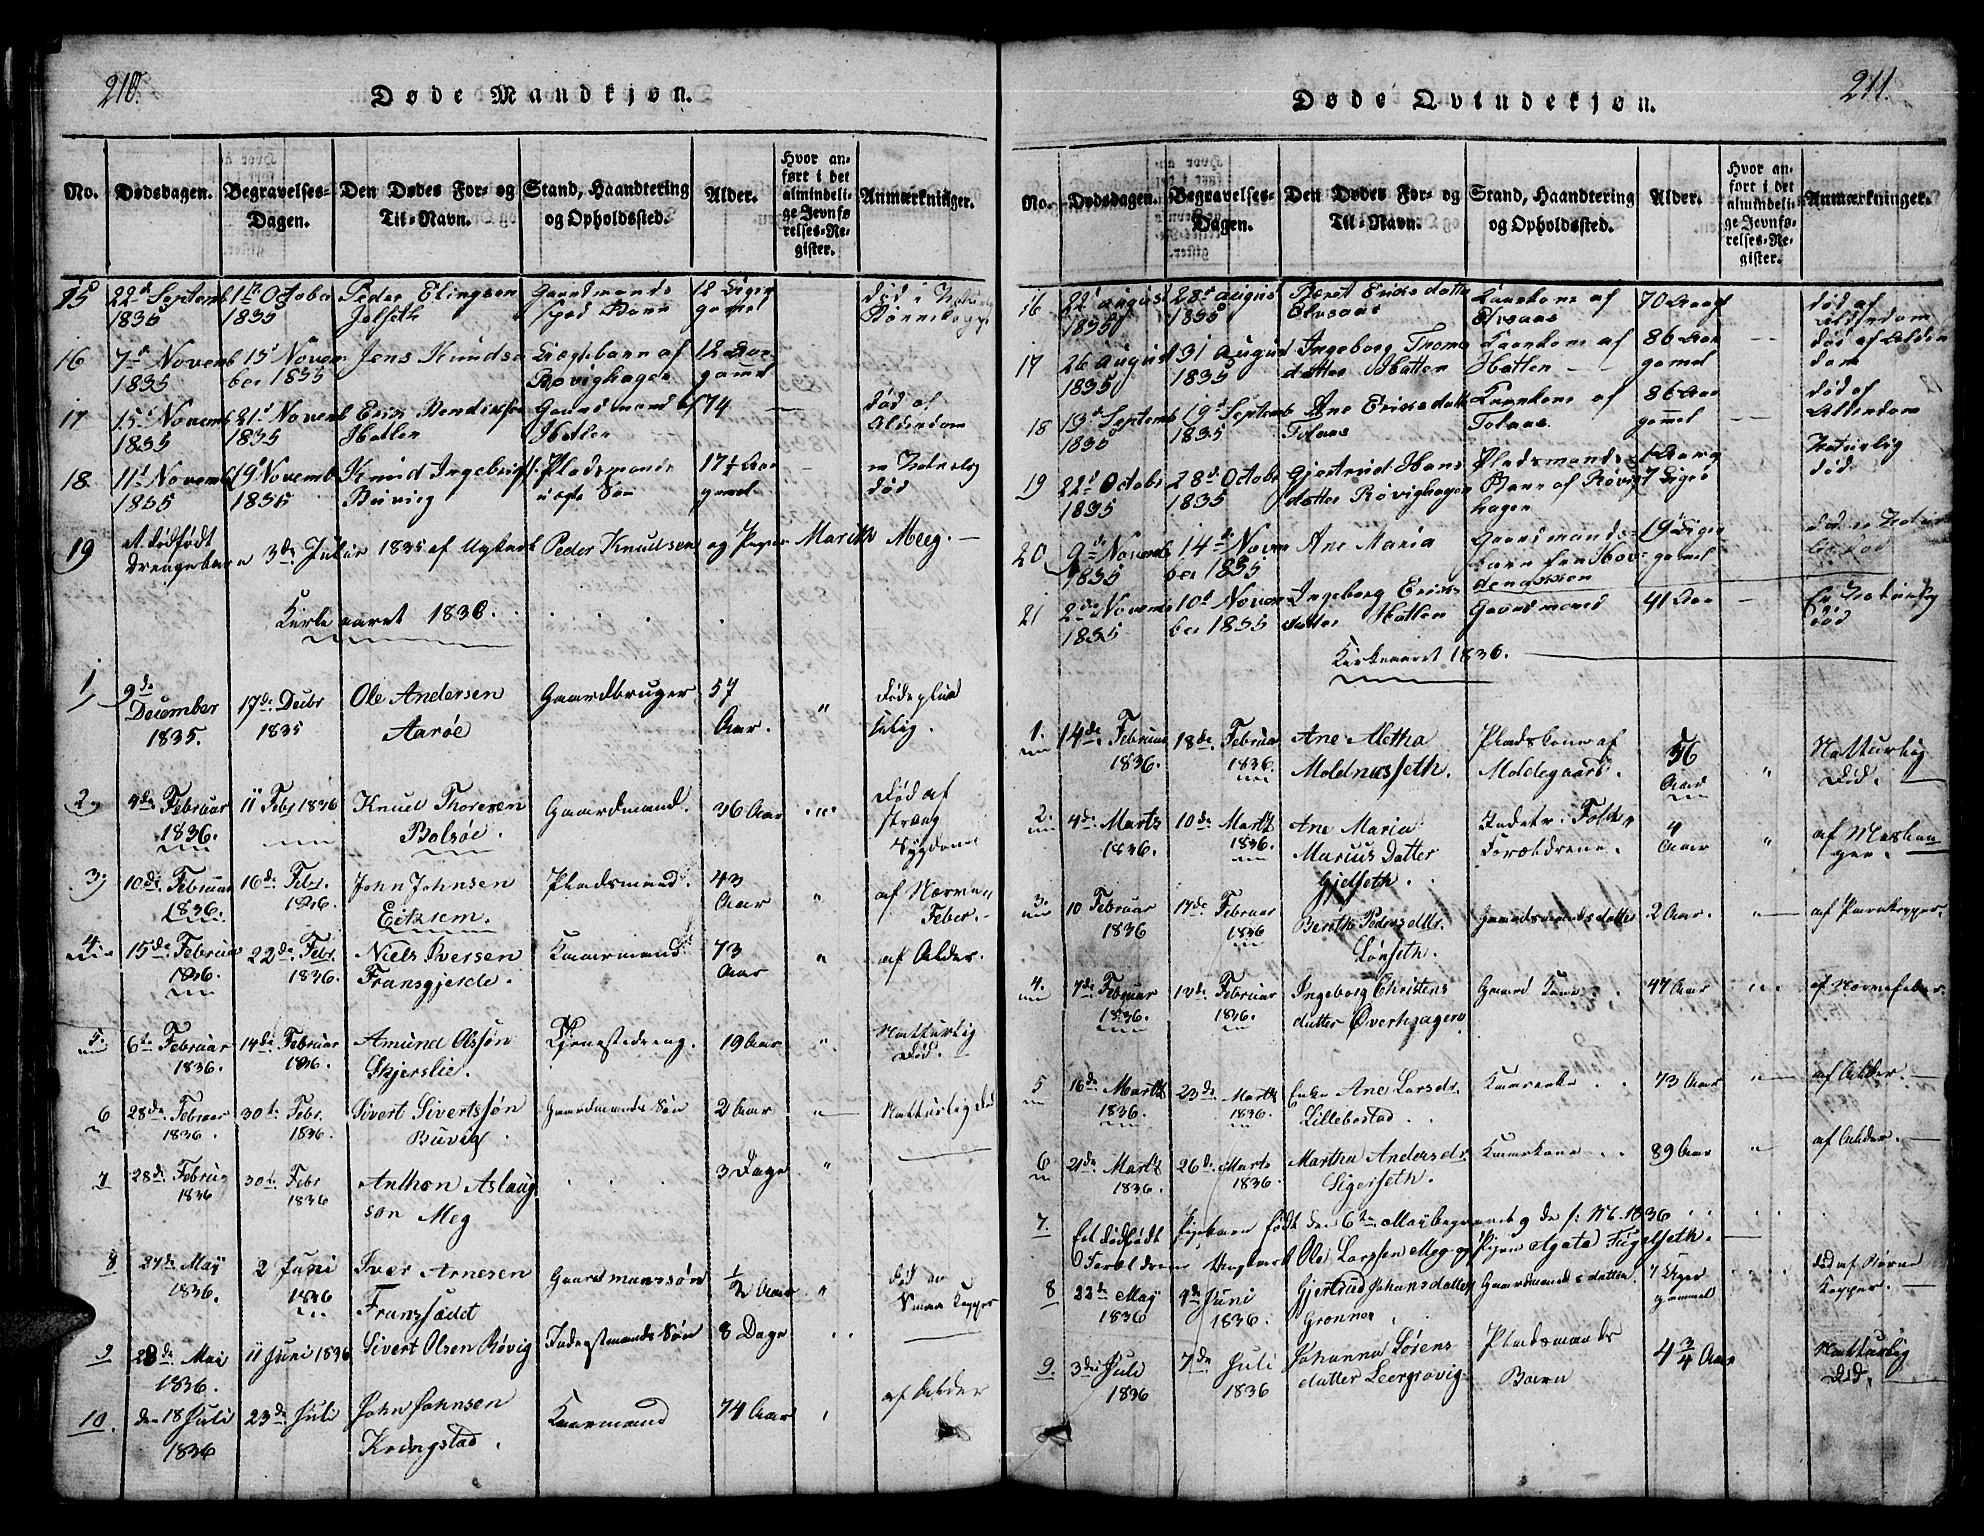 210.
Døde Mandkjøn.
No.
Dødsdagen.
Begravelses-
Dagen.
Den Dødes For- og
Til-Navn.
Stand, Haandtering
og Opholdssted.
Alder.
Hvor an-
ført i det
almindeli-
ge Jevnfø
relses-Re-
gister.
Anmærkninger.
15 22d Septemb 1835 1ste October 1835 Peder Elingsen Jelseth Gaardmands Barn 12 Uger gamel død i
16 7d Novemb 1835 15d Novem ber 1835 Jens Knudse Lægsbarn af Røvighagen 12 gamel
17 15d Novemb 1835 21d Novemb 1835 Erik Bendixsen Hatlen Gaardmand Hatlen 74 død af Alderdom
18 11d Novemb 1835 19d Novemb 1835 Knud Ingebrigts. Buvig Pladsmands ægte Søn 17½ Aar gamel Naturlig død
19 et dødfødt Drengebarn 3de 1835 af Ugkarl Peder Knudsen og Pigen Marith Meeg.
Kirkeaaret 1836.
1 9de December 1835. 17de Decbr 1835 Ole Andersen Aarøe Gaardbruger 57 Aar. " døde pludselig.
2 4de Februar 1836. 11 Febr 1836 Knud Thoresen Bolsøe. Gaardmand. 36 Aar " Død af stræng Sygdom
3 10de Februar 1836. 16de Febr. 1836. John Johnsen Eitrem. Pladsmand. 43 Aar " af Nerve Feber.
4 15de Februar 1836. 22de Febr. 1836. Niels Iversen Fransgjerde. Kaarmand 73 Aar " af Alder.
5. 6te Februar 1836. 14de Februar 1836. Amund Olssøn Skjerslie. Tjenestedreng. 19 Aar " Natturlig Død.
6 28de Februar 1836. 30te Febr. 1836. Sivert Sivertssøn Buvig. Gaardmands Søn 2 Aar " Natturlig død
7 28de Februar 1836 30te Febr 1836 Anthon Aslaug son Meg 3 Dage "
8 27de May 1836. 2 Juni 1836 Iver Arnesen Franssædet Gaardmanssøn ½ Aar " død af Smaa Kopper
9 28de Mai 1836. 11 Juni 1836 Sivert Olsen Røvig Inderstmands Søn 8 Dage
10. den 18 Juli 1836 23de Juli John Johnsen Kringstad. Kaarmand 74 Aar af Alder
211.
Døde Qvindekjøn.
No.
Dødsdagen.
Begravelses-
Dagen.
Den Dødes For- og
Til-Navn.
Stand, Haandtering
og Opholdssted.
Alder.
Hvor an-
ført i det
almindeli-
ge Jevnfø-
relses-Re-
gister.
Anmærkninger.
16 22d august 1835 28d august 1835 Beret Eriksdatter Elvsaas Kaarkone af Elvsaas 70 gamel død af Alderdom
17 26 August 1835 31 August 1835 Ingeborg Thoms datter Hatlen Kaarkone af Hatlen 86 Aar gamel død af Alder dom
18 13d Septemb 1835 19d Septemb 1835 Ane Eriksdatter Tolaas Kaarkone af Tolaas 86 Aar gamel død af Alderdom
19 22d Octobe 1835 28de October 1835 Gjertrud Hans datter Røvighagen Pladsmands Barn af Røvig hagen 1 Aar og 7 Uger Naturlig død
20 9de Novemb 1835 14de Novem ber 1835 Ane Maria Gaardmands- barn 19 Uger gamel
21 2de Novemb 1835 10d Novem ber 1835 Ingeborg Eriks datter Hatlen Gaardmand 41 Aar En Naturlig død
Kirkeaaret 1836.
1. 14de Februar 1836. 18de Februar 1836. Ane Metha Moldnusseth. Pladskone af Moldegaard. 56 Aar " Natturlig Død.
2. 4de Marts 1836. 10de Martz 1836. Ane Maria Marius Datter Gjelseth. Forældrene. 4 Aar "
3. 10 Februar 1836 17de Februar 1836 Berith Pedersdtr. Lønseth. Gaardmandsdatter 2 Aar. "
4. 7de Februar 1836. 12de Februar 1836. Ingeborg Christens datter Øverhagen Gaard Kone 47 Aar " af Nervefeber.
5 16de Martz 1836. 23de Martz 1836. Enke Ane Larsdr. Lillebostad. Kaarenke 73 Aar " af Alder.
6 21de Martz 1836. 26de Marts 1836. Martha Andersdr. Ligerseth. Kaarkone 89 Aar " af Alder.
7. Et dødfødt Pigebarn født den 6te May begravet 9de s: M. 1836
Forældrene Ungkarl Ole Larssen Meg og Pigen Agata Fugelseth.
8 22de May 1836 4de Juni 1836. Gjertrud Johansdatter Grønnes Gaardmands datter. 7 Uger gammel død af Børne Kopper.
9. 3die Juli 1836 7de Juli 1836 Johanna Lørens datter Leergrovig. Pladsmands Barn 4¾ Aar Natturlig Død.